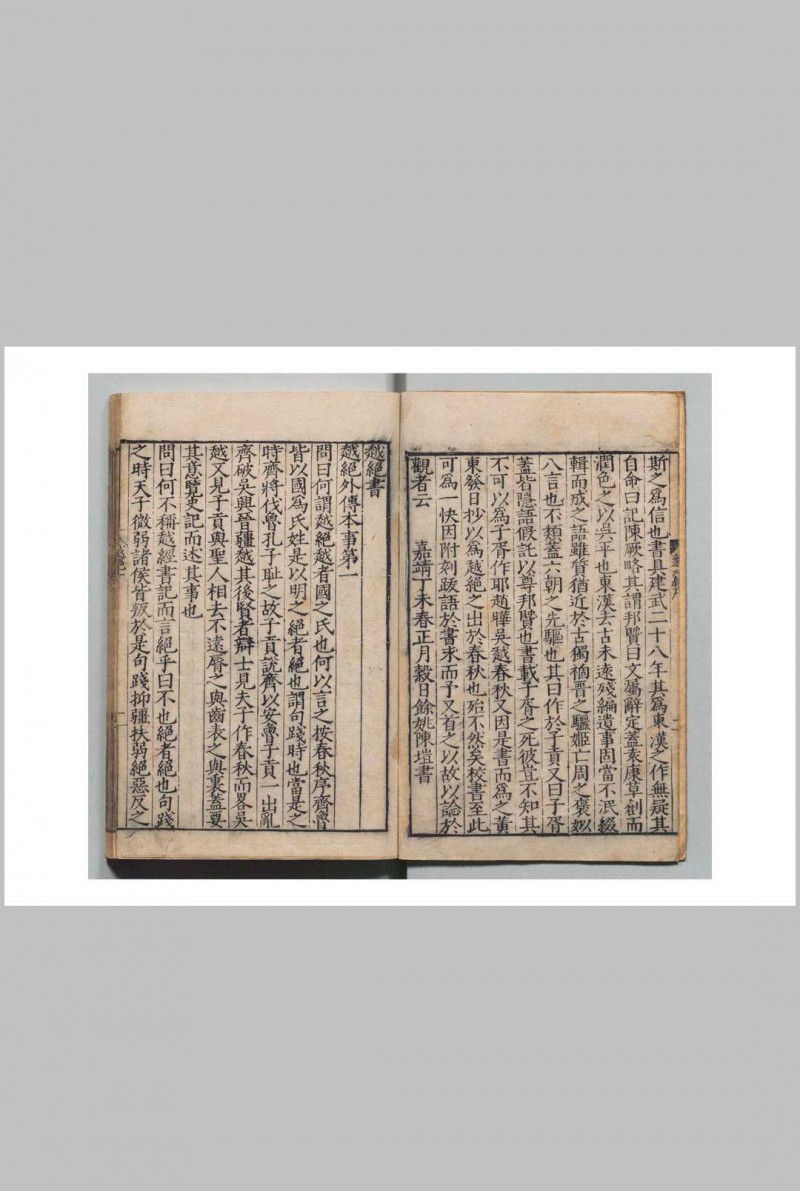 斯之為信也書具建武二十八年其為東漢之作無疑其
自命曰記陳厥略其謂邦賢曰文屬辭定蓋袁康草創而
潤色之以吳平也東漢去古未遠殘編遺事固當不泯綴
輯而成之語雖質猶近於古獨褕晋之驅姬亡周之褒姒
八言也不類蓋六朝之先驅也其曰作於子貢又曰子胥
蓋皆隱語假託以尊邦賢也書載子胥之死彼豈不知其
不可以為子胥作耶趙曄吳越春秋又因是書而為之黃
東發日抄以為越絕之出於春秋也殆不然矣校書至此
可為一快因附刻跋語於書末而予又首之以故以諗於
觀者云 嘉靖丁未春正月穀日餘姚陳塏書
越絕書
越絕外傳本事第一
問曰何謂越絕越者國之氏也何以言之按春秋序齊魯
皆以國為氏姓是以明之絕者絕也謂句踐時也當是之
時齊將伐魯孔子恥之故子貢說齊以安魯子貢一出亂
齊破吳興晉疆越其後賢者辯士見夫子作春秋而畧吳
越又見子貢與聖人相去不遠脣之與齒表之與裏蓋要
其意覽史記而述其事也
問曰何不稱越經書記而言絕乎曰不也絕者絕也句踐
之時天子微弱諸侯皆叛於是句踐抑疆扶弱絕惡反之